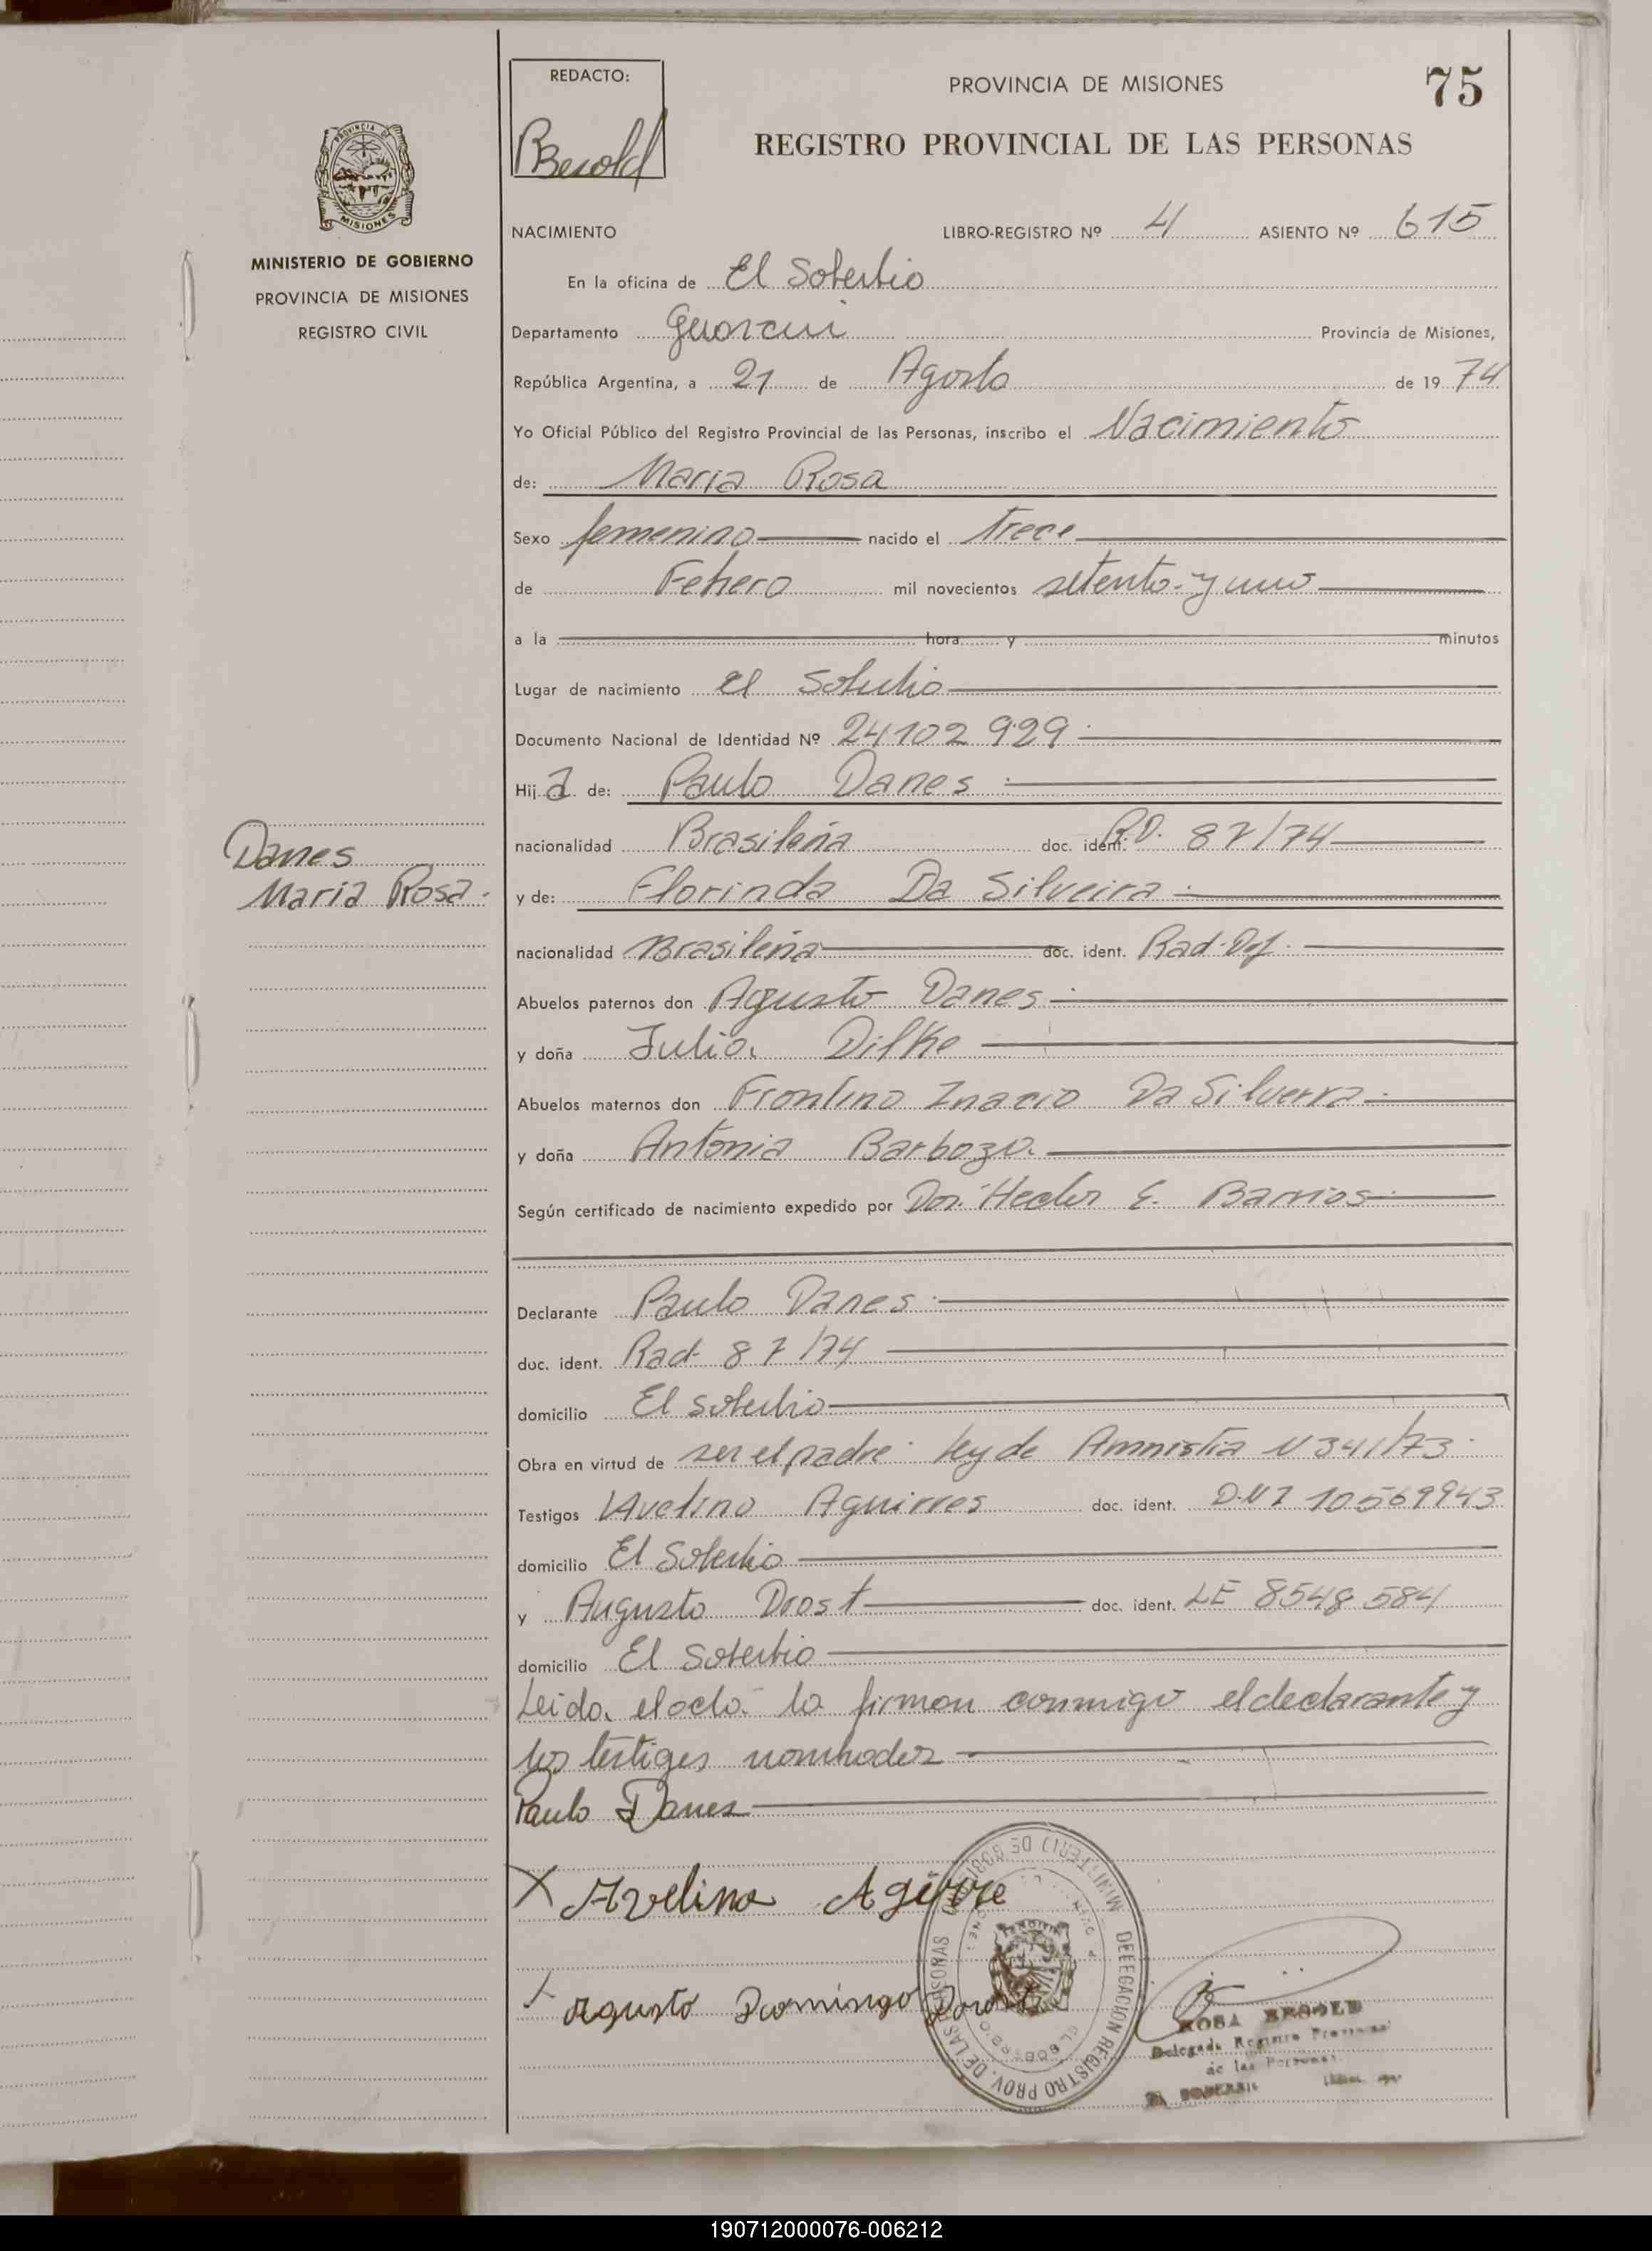 REDACTO:
PROVINCIA DE MISIONES
75
RBesold
REGISTRO PROVINCIAL DE LAS PERSONAS
PROVINCIA DE
MISIONES
MINISTERIO DE GOBIERNO
PROVINCIA DE MISIONES
REGISTRO CIVIL
NACIMIENTO LIBRO-REGISTRO Nº 4 ASIENTO Nº 615
En la oficina de El Soberbio
Departamento Guarani Provincia de Misiones,
República Argentina, a 21 de Agosto de 1974
Yo Oficial Público del Registro Provincial de las Personas, inscribo el Nacimiento
de: Maria Rosa
Sexo femenino nacido el trece
de Febrero mil novecientos setenta y uno
a la hora y minutos
Lugar de nacimiento El Soberbio
Documento Nacional de Identidad Nº 24102929
Hija de: Paulo Danes
nacionalidad Brasileña doc. ident. RD. 87/74
Danes
Maria Rosa.
y de: Florinda Da Silveira
nacionalidad Brasileña doc. ident. Rad. Def.
Abuelos paternos don Agusto Danes
y doña Julia Dilke
Abuelos maternos don Frontino Inacio Da Silverra
y doña Antonia Barboza
Según certificado de nacimiento expedido por Dor. Hector E. Barrios
Declarante Paulo Danes
doc. ident. Rad. 87/74
domicilio El Soberbio
Obra en virtud de ser el padre. Ley de Amnistia N 341/73
Testigos Avelino Aguirres doc. ident. D.N I 10569943
domicilio El Soberbio
y Augusto Drost doc. ident. LE 8548584
domicilio El Soberbio
Leida el acta la firman conmigo el declarante y
los testiges nombrados
Paulo Danes
X Avelino Agirre
X Agusto Domingo Dorost
MINISTERIO DE GOBIERNO
DELEGACION REGISTRO PROV. DE LAS PERSONAS
EL SOBERBIO
ROSA BESOLD
Delegada Registro Provincial
de las Personas
EL SOBERBIO
190712000076-006212